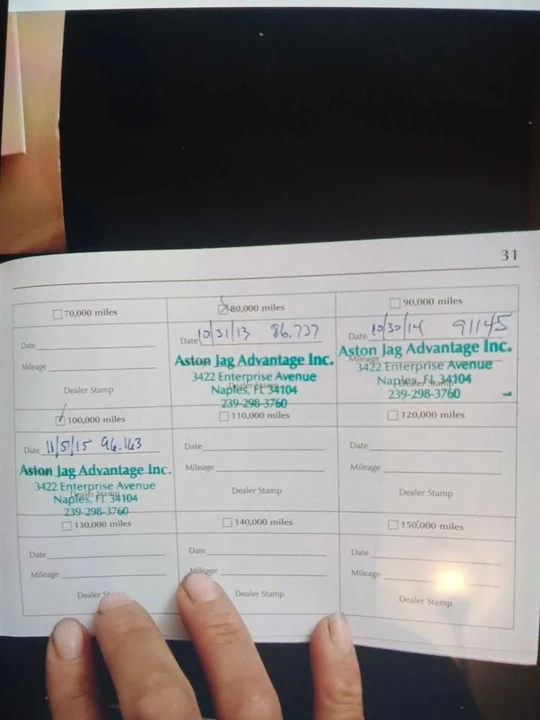 31
70,000 miles
Date
Mileage
Dealer Stamp
80,000 miles
Date 10/31/13 86,737
Aston Jag Advantage Inc.
3422 Enterprise Avenue
Naples, FL 34104
239-298-3760
90,000 miles
Date 10/30/14 91145
Mileage
Aston Jag Advantage Inc.
3422 Enterprise Avenue
Naples, FL 34104
Dealer Stamp
239-298-3760
100,000 miles
Date 11/5/15 96,163
Aston Jag Advantage Inc.
3422 Enterprise Avenue
Naples, FL 34104
Dealer Stamp
239-298-3760
110,000 miles
Date
Mileage
Dealer Stamp
120,000 miles
Date
Mileage
Dealer Stamp
130,000 miles
Date
Mileage
Dealer
140,000 miles
Date
Mileage
Dealer Stamp
150,000 miles
Date
Mileage
Dealer Stamp